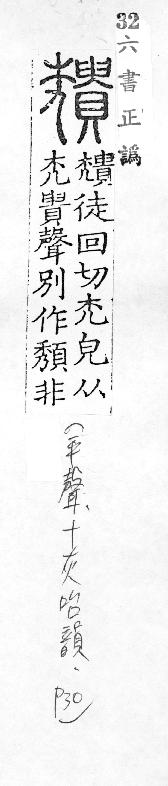 32 六書正譌
穨
穨徒回切禿皃从
禿貴聲別作頽非
(平聲、十灰咍韻、
P30)